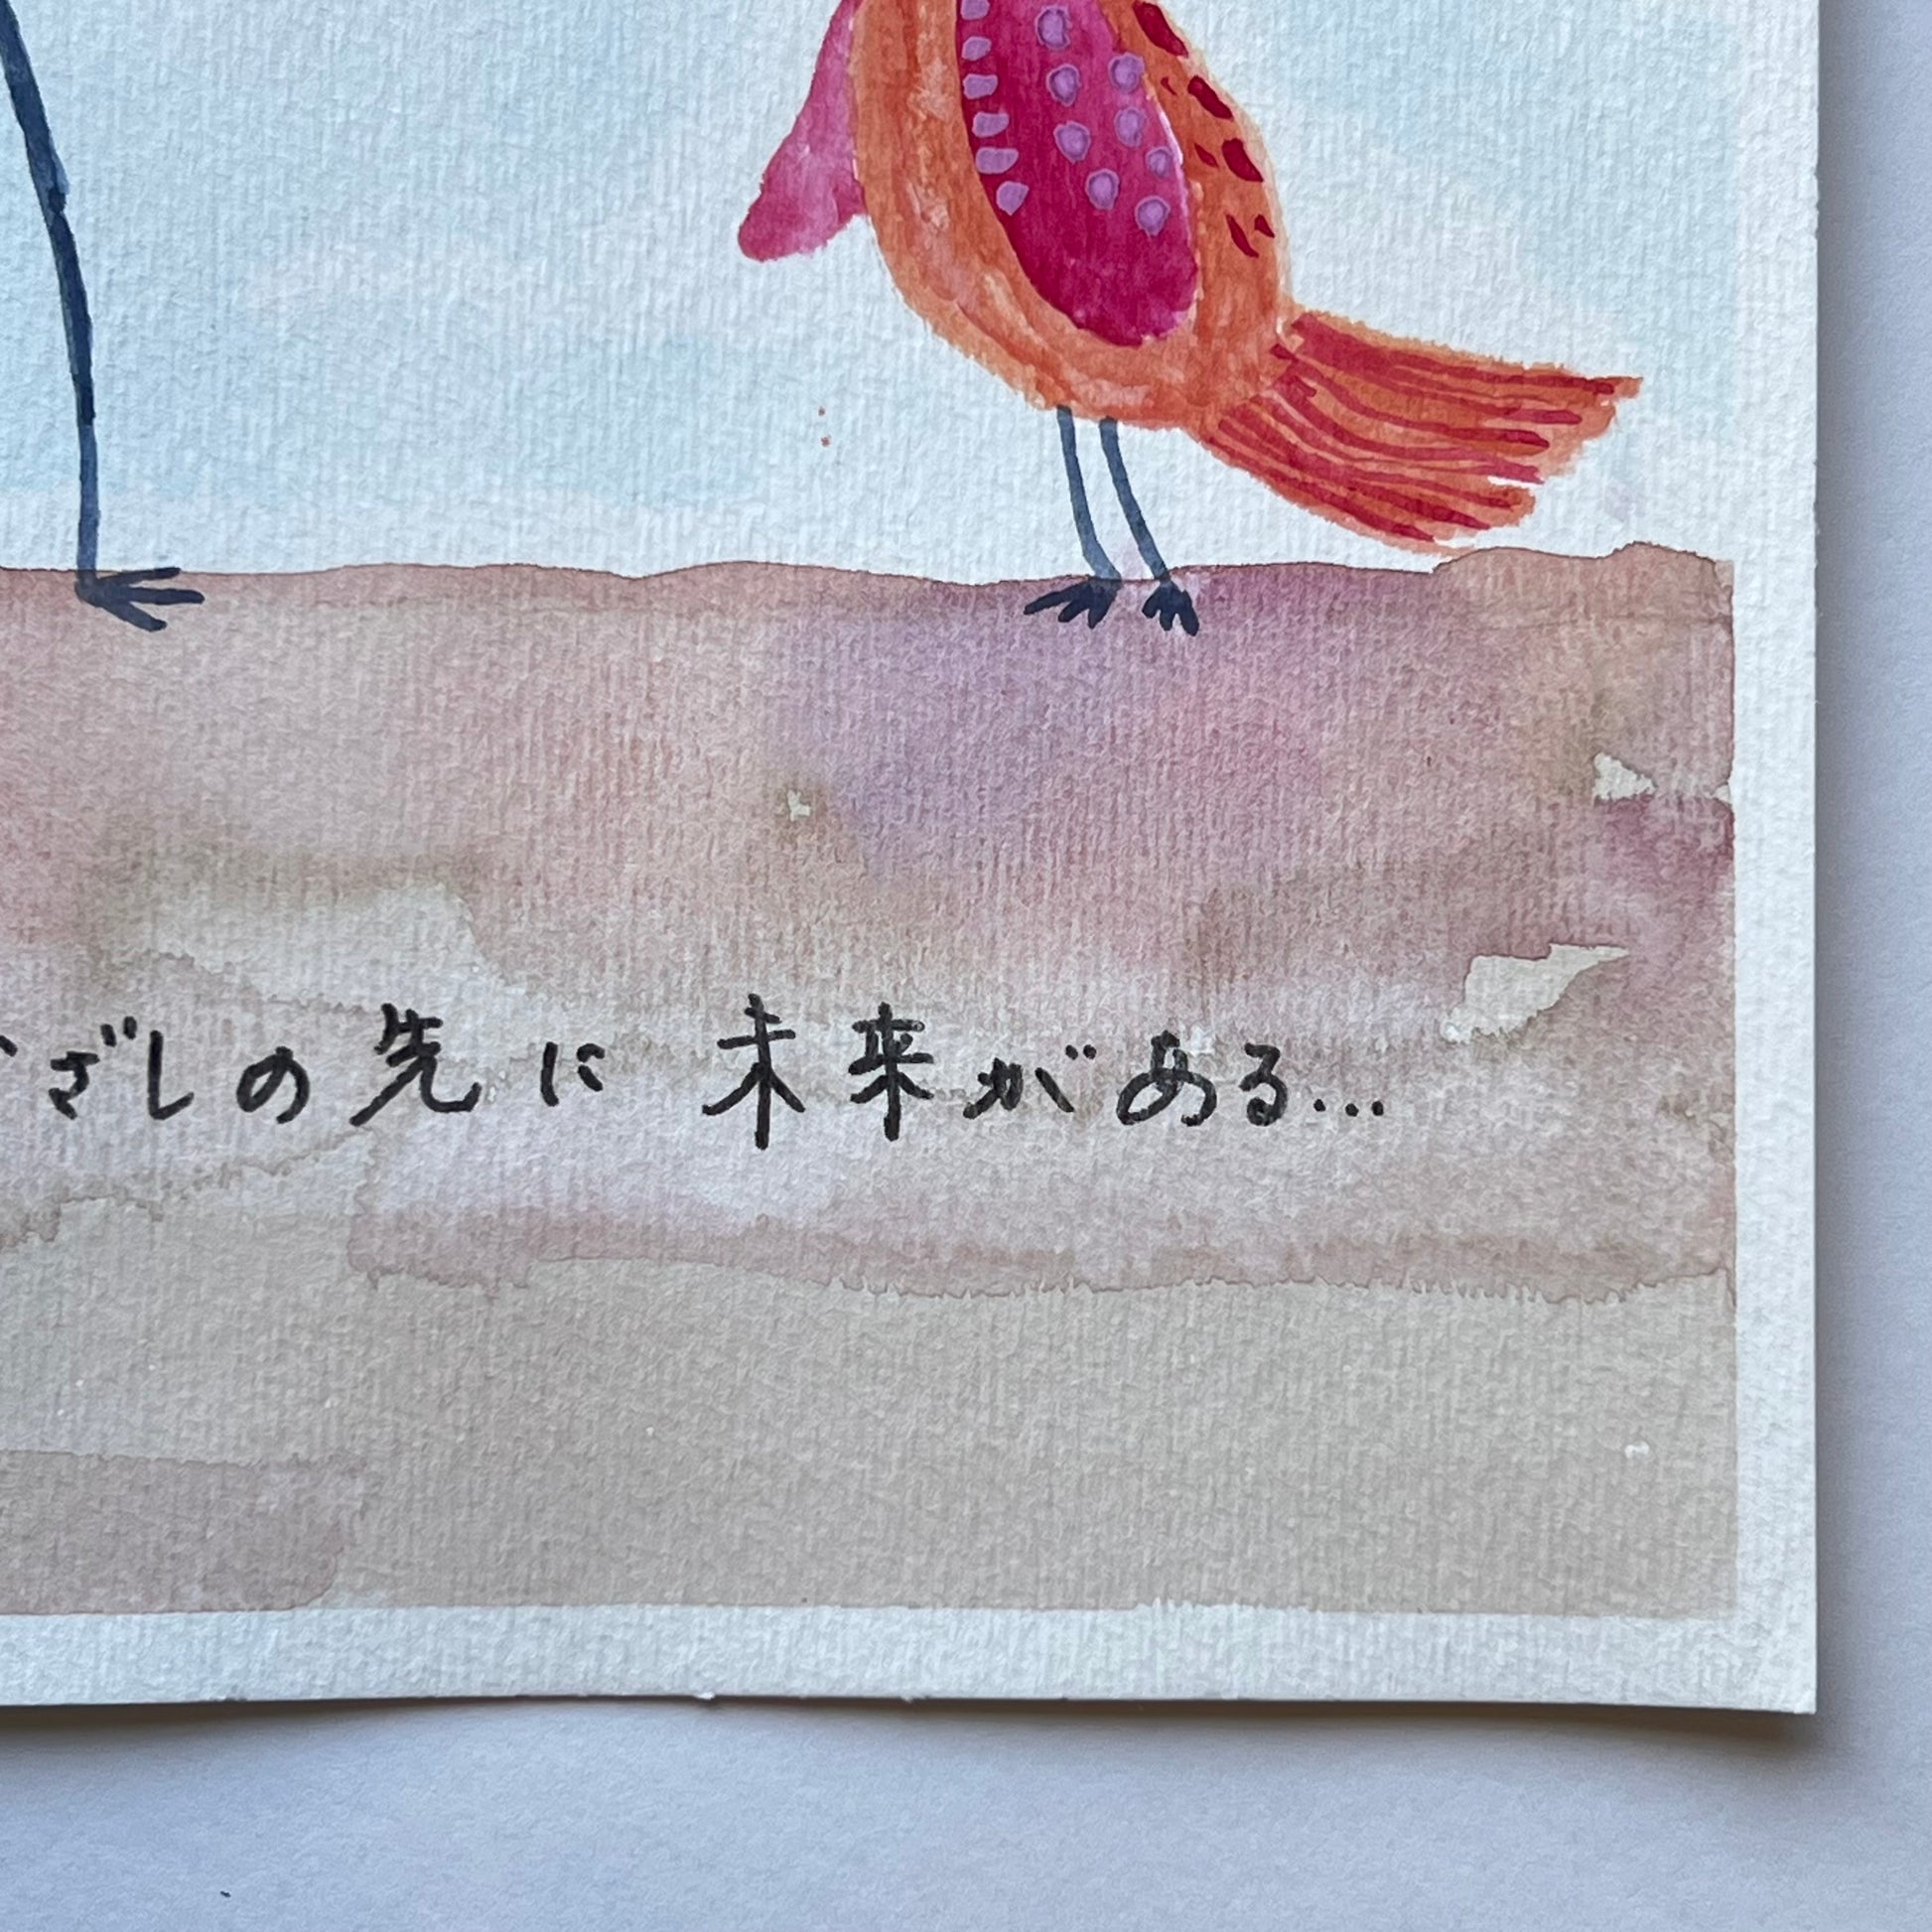 ざしの先に 未来がある...